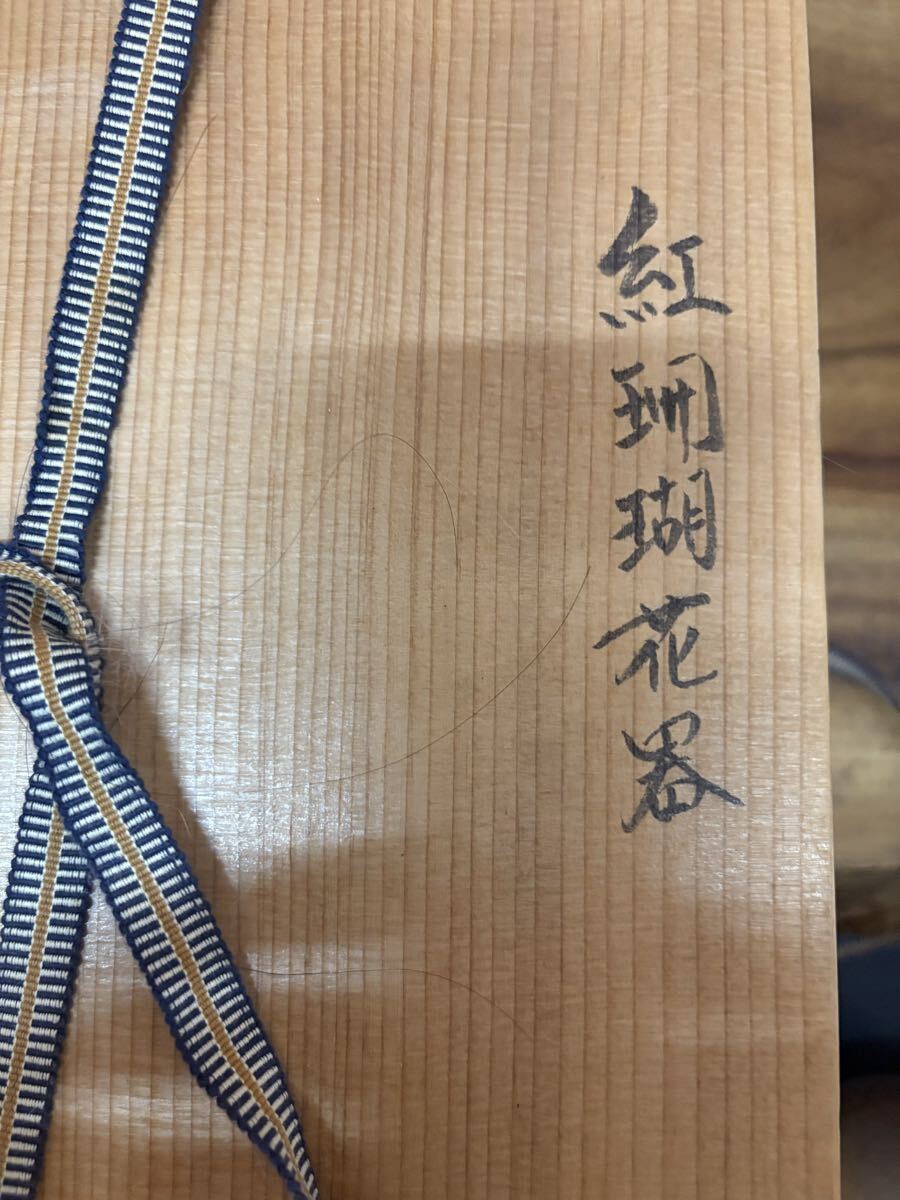 紅珊瑚花器